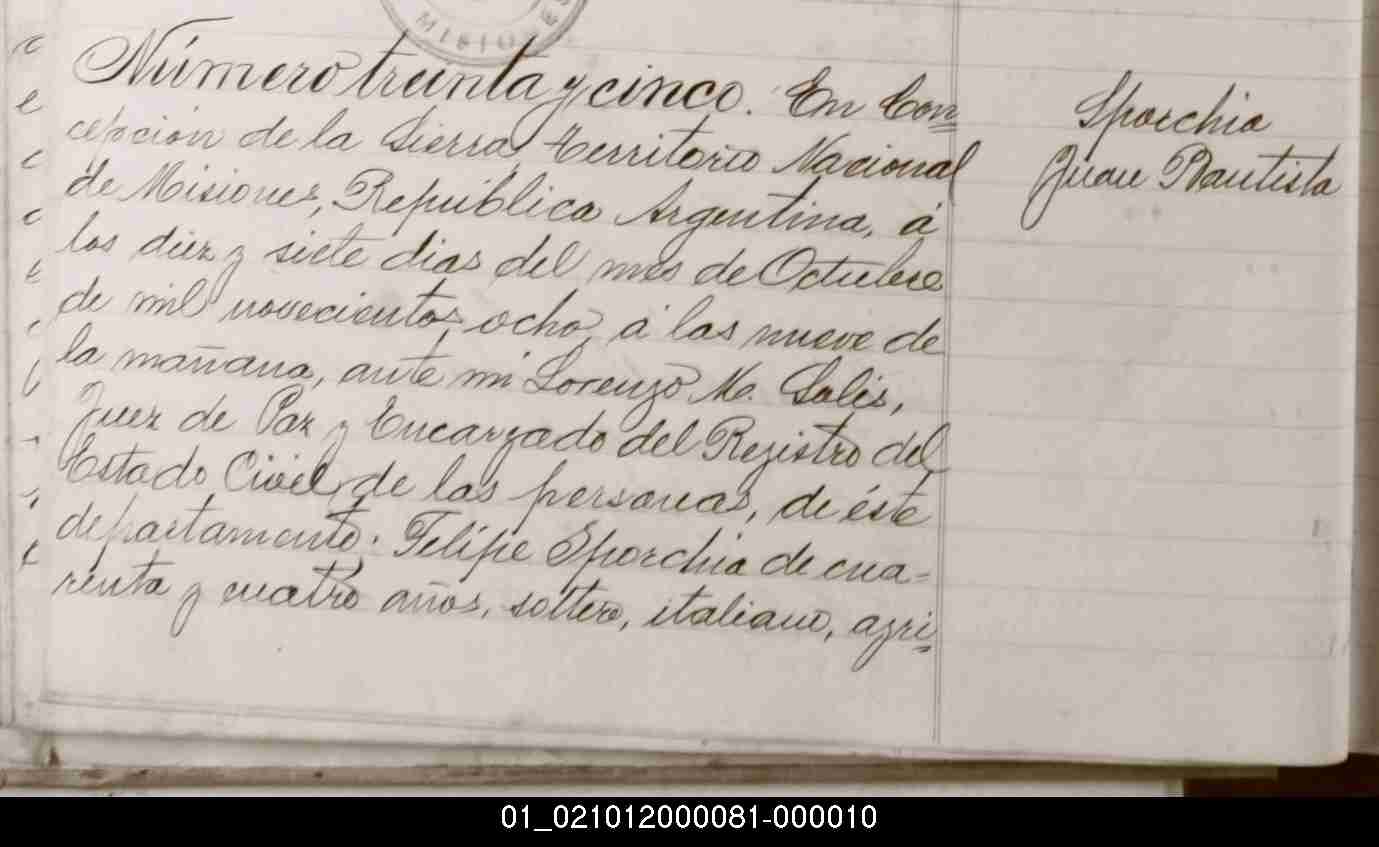 MISIONES
Número treinta y cinco. En Con=
cepción de la Sierra, Territorio Nacional
de Misiones, República Argentina, á
los diez y siete dias del mes de Octubre
de mil novecientos ocho, á las nueve de
la mañana, ante mi Lorenzo M. Solis,
Juez de Paz y Encargado del Registro del
Estado Civil de las personas, de éste
departamento. Felípe Sporchia de cua=
renta y cuatro años, soltero, italiano, agri=
Sporchia
Juan Bautista
01_021012000081-000010